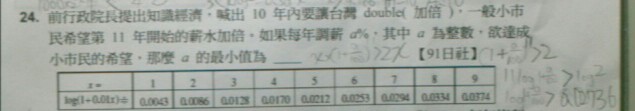 24. 前行政院長提出知識經濟，喊出 10 年內要讓台灣 double( 加倍 )，一般小市
民希望第 11 年開始的薪水加倍，如果每年調薪 a%，其中 a 為整數，欲達成
小市民的希望，那麼 a 的最小值為 ____ 【91日社】
x= 1 2 3 4 5 6 7 8 9
log(1+0.01x)≑ 0.0043 0.0086 0.0128 0.0170 0.0212 0.0253 0.0294 0.0334 0.0374